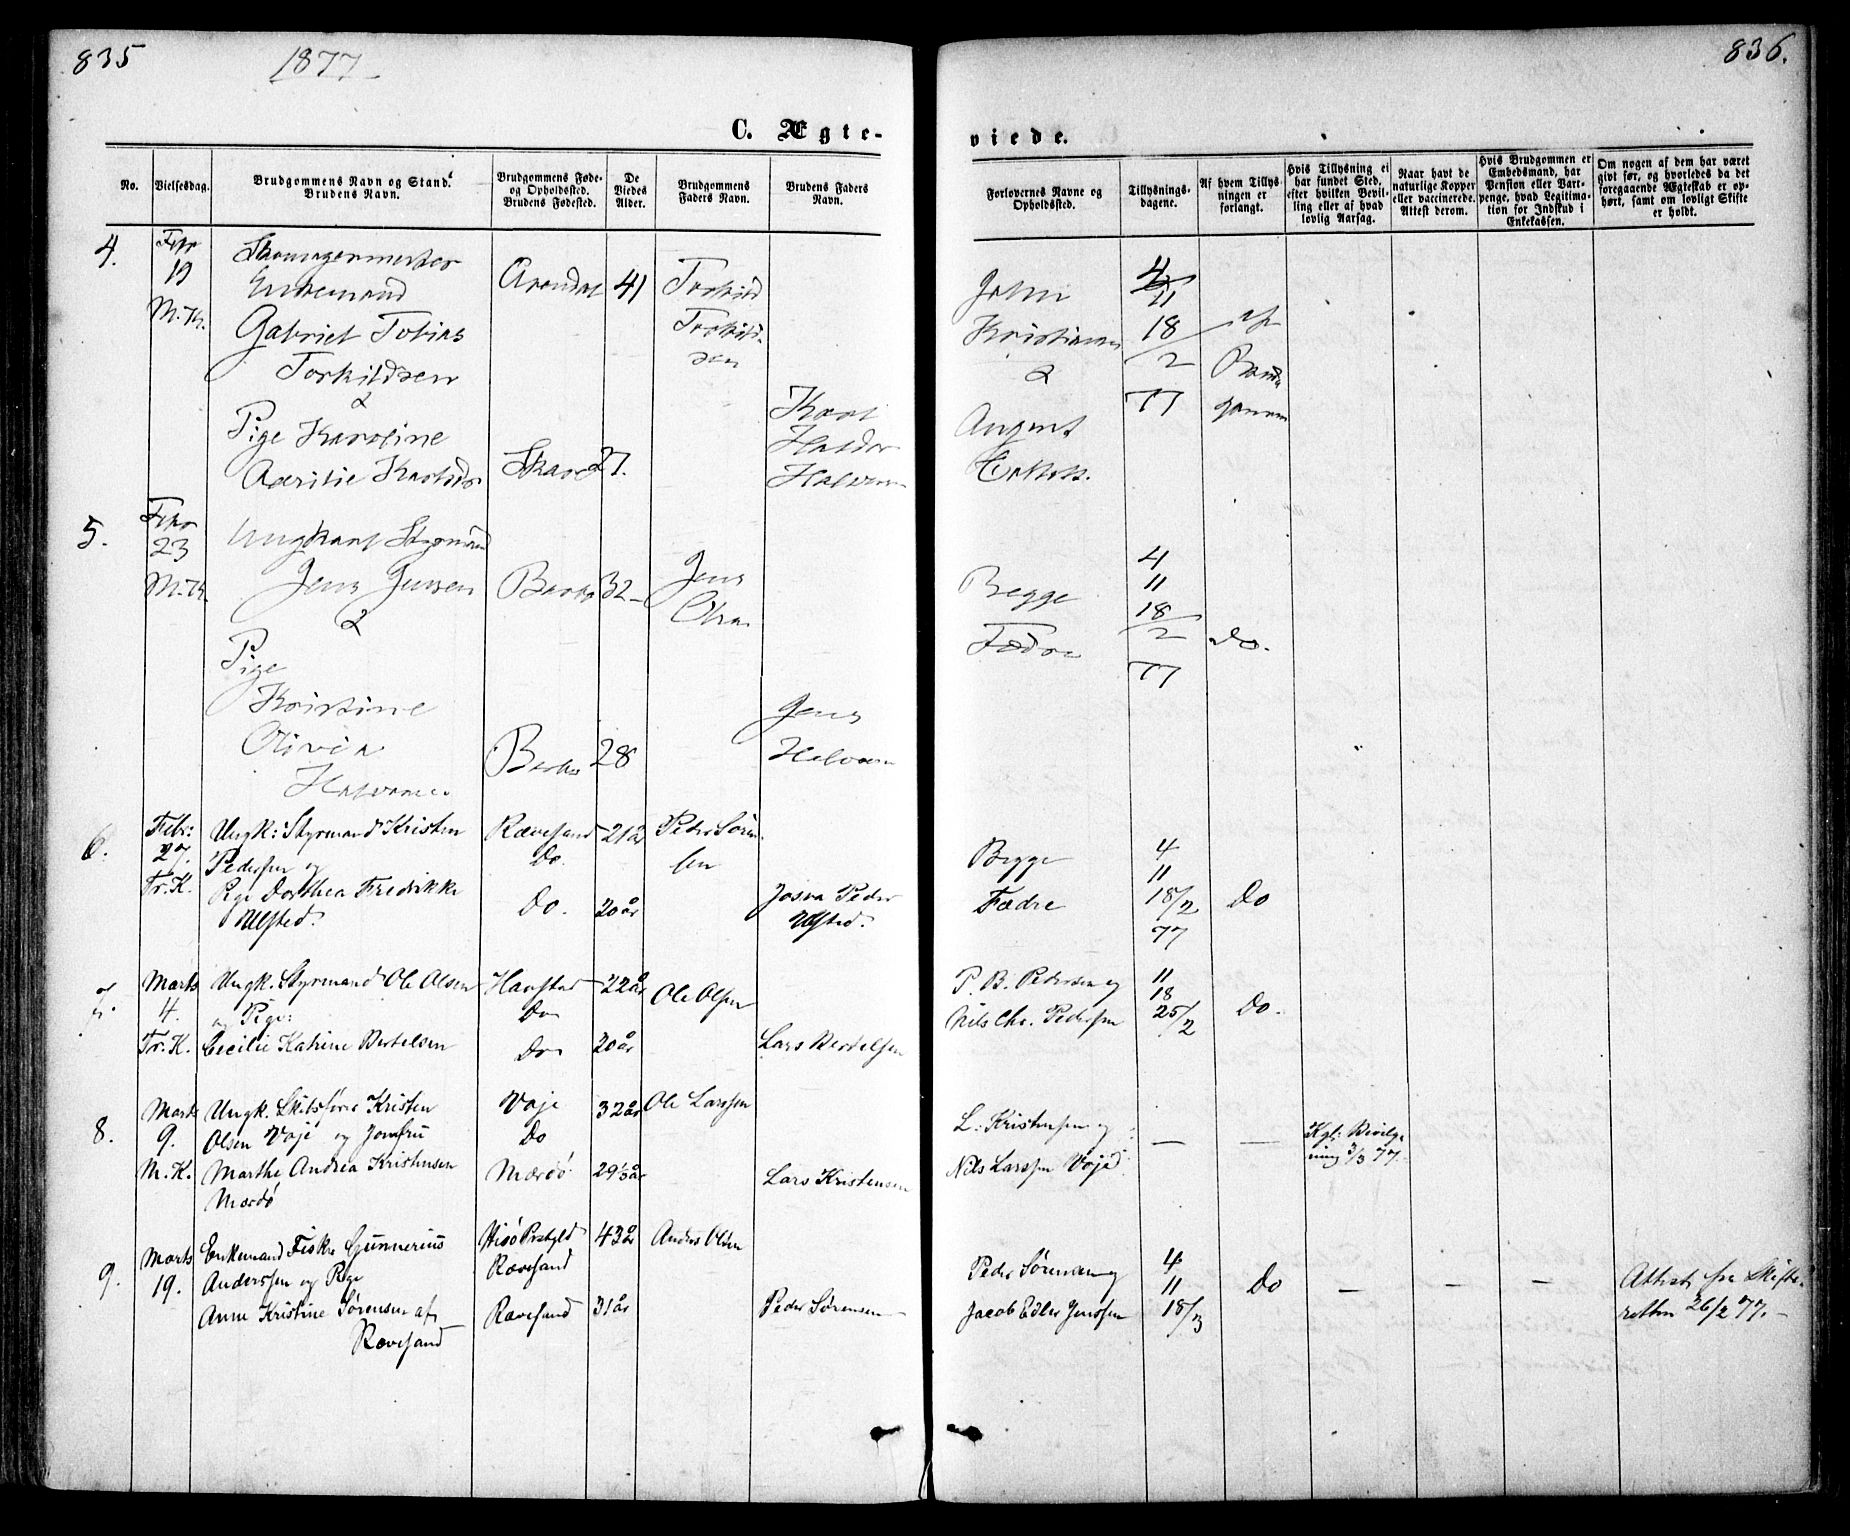 835
1877
836.
C. Ægte-
viede.
No.
Vielsesdag.
Brudgommens Navn og Stand.
Brudens Navn.
Brudgommens Føde-
og Opholdssted.
Brudens Fødested.
De
Viedes
Alder.
Brudgommens
Faders Navn.
Brudens Faders
Navn.
Forlovernes Navne og
Opholdssted.
Tillysnings-
dagene.
Af hvem Tillys-
ningen er
forlangt.
Hvis Tillysning ei
har fundet Sted,
efter hvilken Bevil-
ling eller af hvad
lovlig Aarsag.
Naar havt de
naturlige Kopper
eller vaccinerede.
Attest derom.
Hvis Brudgommen er
Embedsmand, har
Pension eller Vart-
penge, hvad Legitima-
tion for Indskud i
Enkekassen.
Om nogen af dem har været
givt før, og hvorledes da det
foregaaende Ægteskab er op-
hørt, samt om lovligt Skifte
er holdt.
4.
Febr
19
M.K.
Enkemand
Gabriel Tobias
Torkildsen
&
Pige Karoline
Arendal
41
27.
Torkild
Torkild-
sen
Karl
Haldor
Halvorsen
John
Kristiansen
&
August
4
11
18
/2
77
5.
Febr
23
M.K.
Ungkarl Styrmand
Jens Jensen
&
Pige
Kristine
Olivia
Halvorsen
32
28
Jens
Olsen
Jens
Halvorsen
Begge
Fædre
4
11
18
/2
77
Do.
6.
Febr:
27.
Tr. K.
Ungk: Styrmand Kristen
Pederssen og
Pige Dorthea Fredrikke
Ulfsted.
Rævesand
Do.
Do.
21 år
20 år
Peder Søren-
sen
Josva Peder
Ulfsted.
Begge
Fædre
4
11
18/2
77
Do
7.
Marts
4.
Tr. K.
Ungk. Styrmand Ole Olsen
og Pige:
Cecilie Katrine Bertelsen
Havstad
Do
Do
22 år
20 år
Ole Olsen
Lars Bertelsen
P. B. Pedersen og
Nils Chr. Pederssen
11
18
25/2
Do.
8.
Marts
9.
M. K.
Ungk. Skibsfører Kristen
Olsen Voje og Jomfru
Marthe Andrea Kristensen
Mærdö
Voje
Do
Mærdö
32 år
29 1/3 år
Ole Larssen
Lars Kristensen
L. Kristensen og
Nils Larssen Voje
—
—
Kgl: Bevilg-
ning 3/3 77.
9.
Marts
19.
Enkemand Fisker Gunnerius
Anderssen og Pige
Anne Kristine Sørensen af
Rævesand
Hisö Prstgld
Rævesand
Rævesand
43 år
31 år
Anders Olsen
Peder Sørensen
Peder Sørensen og
Jacob Edler Jenssen
4
11
18/3
Do
—
—
—
Attest fra Skifte-
retten 26/2 77.